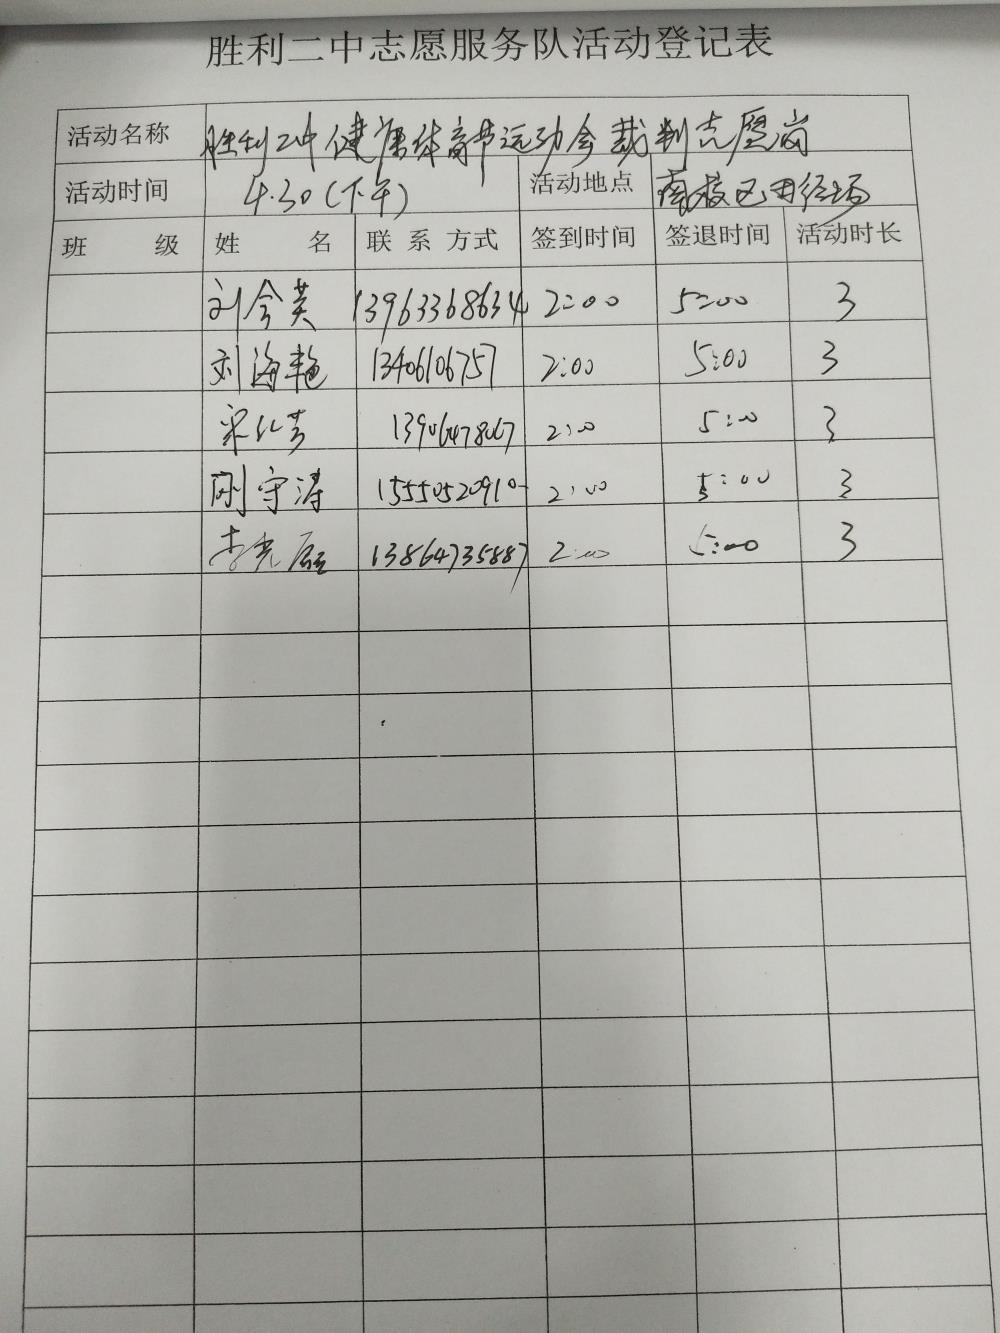 胜利二中志愿服务队活动登记表
活动名称 胜利二中健康体育节运动会裁判志愿岗
活动时间 4.30(下午) 活动地点 南校区田径场
班 级 姓 名 联 系 方式 签到时间 签退时间 活动时长
刘会英 13963368634 2:00 5:00 3
刘海艳 13406106757 2:00 5:00 3
13906478067 2:00 5:00 3
刚守涛 15550520910 2:00 5:00 3
李光 13864735887 2:00 5:00 3